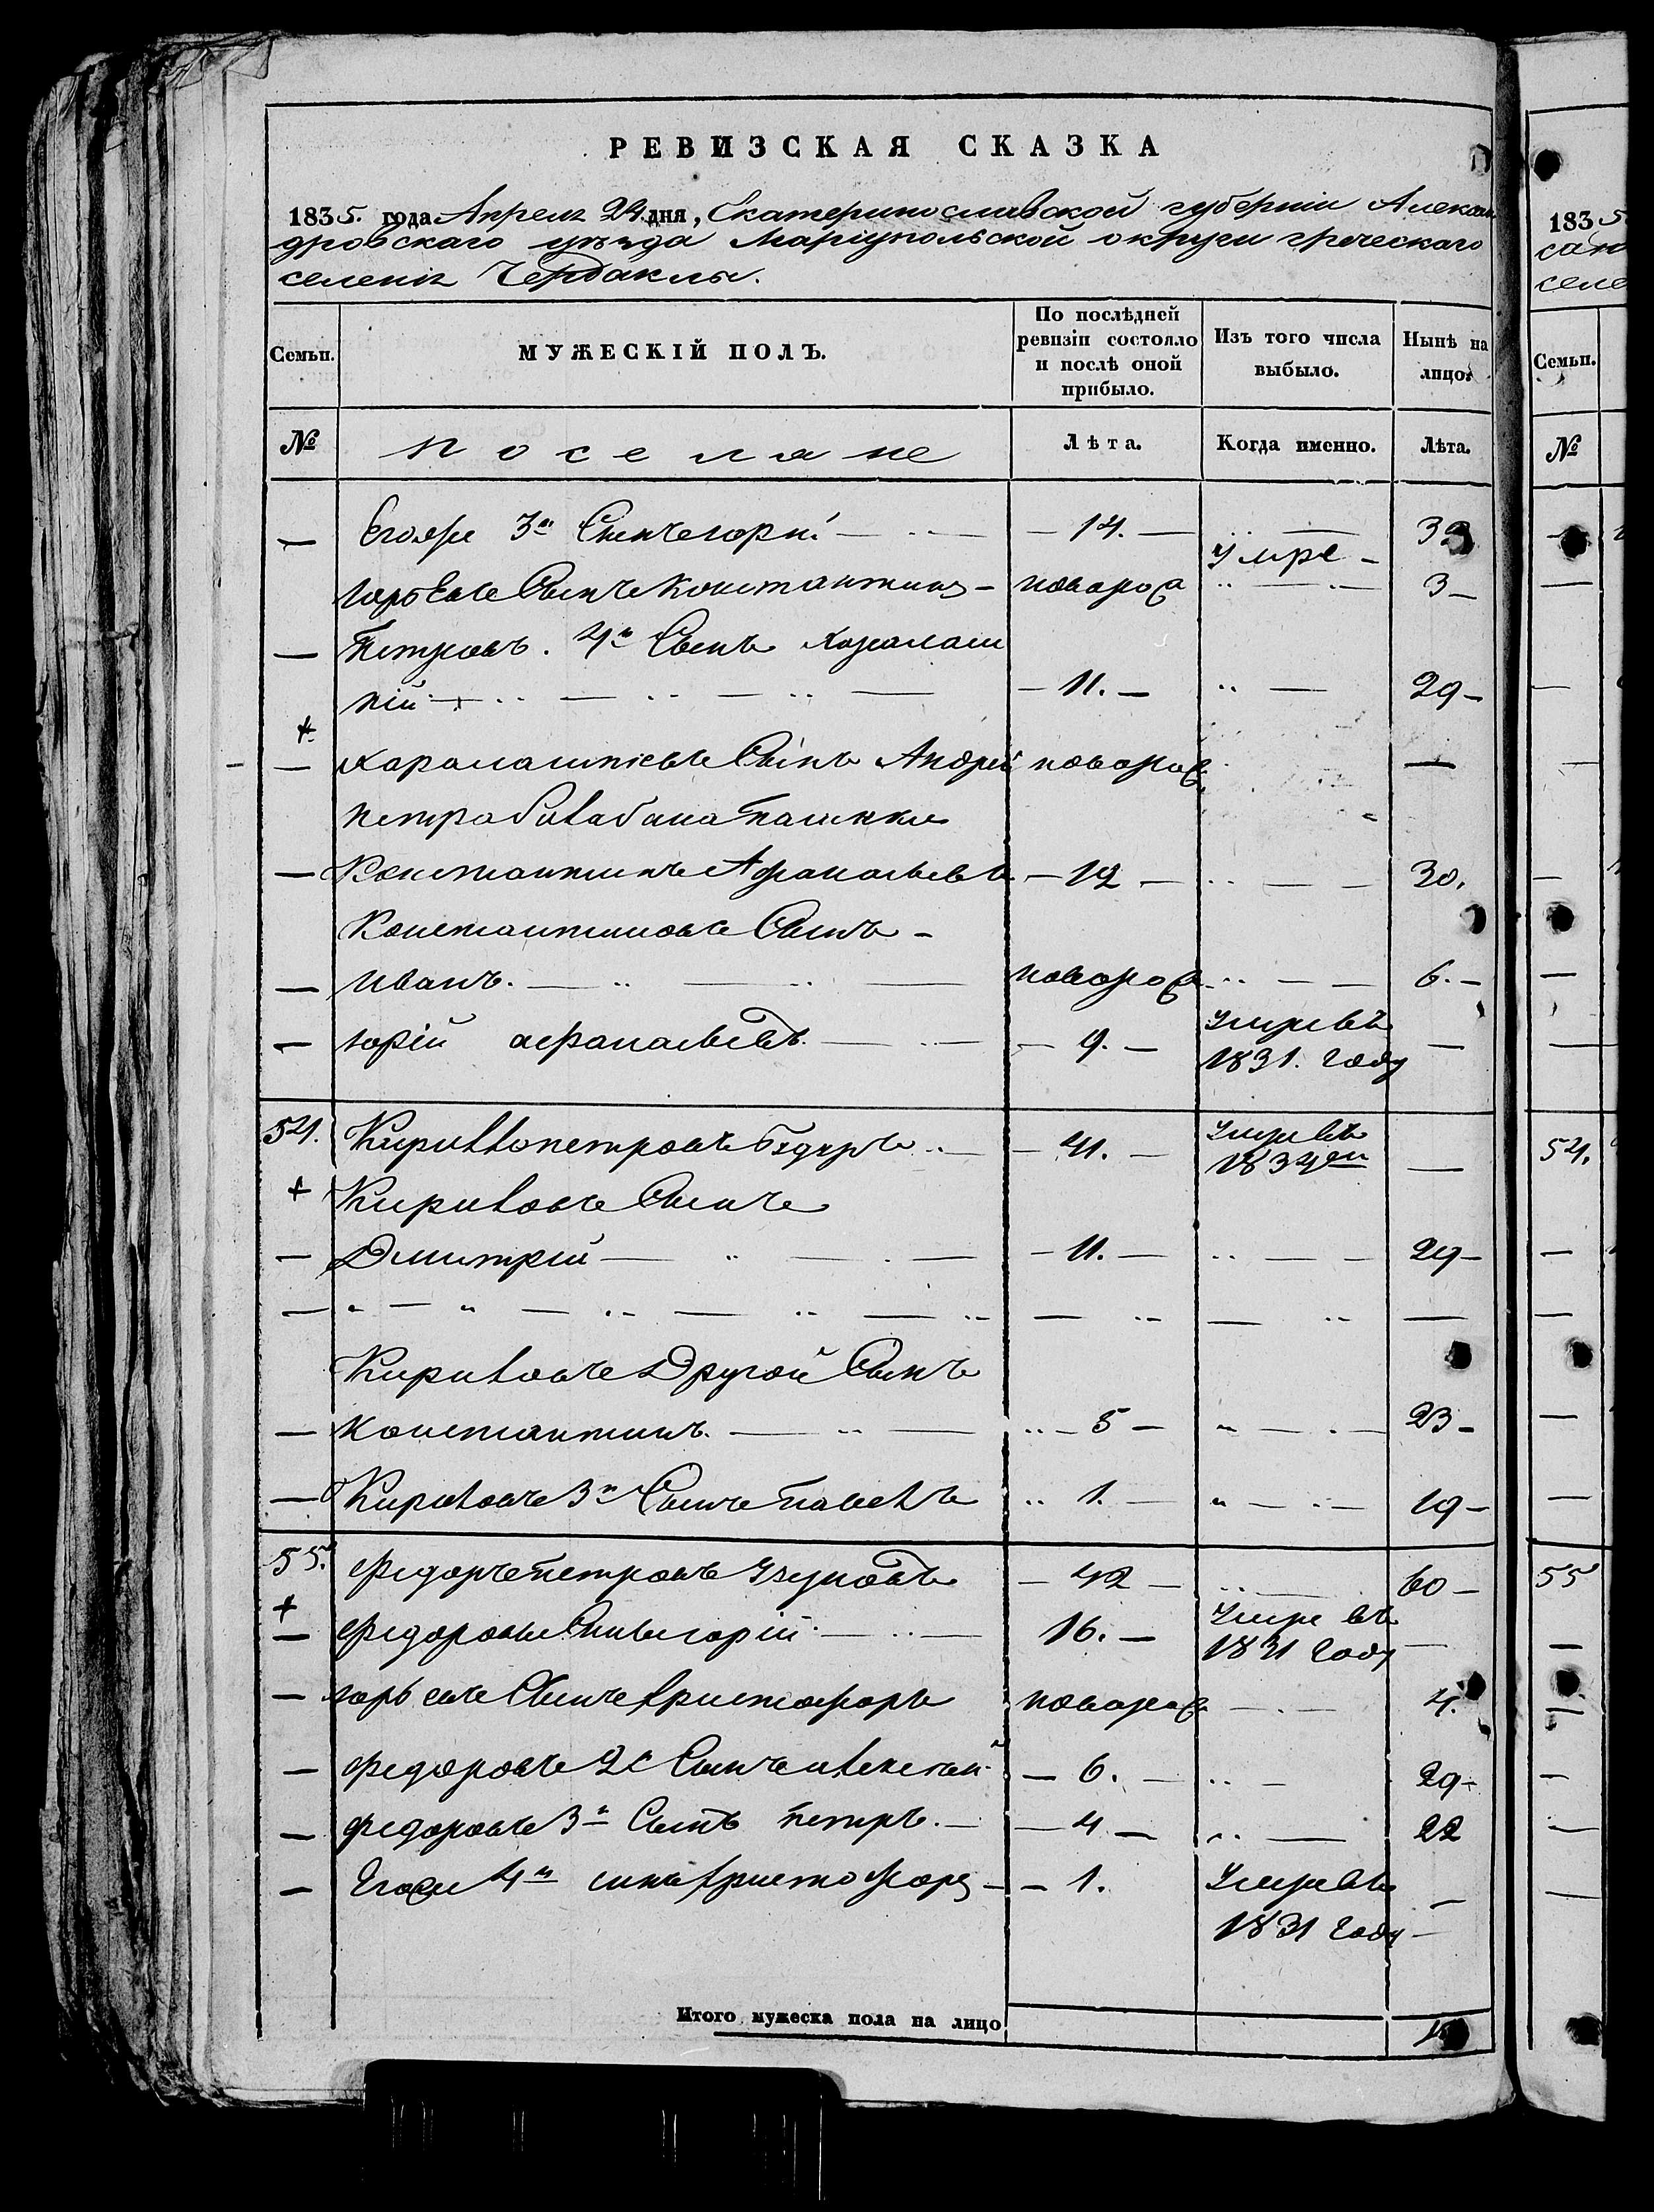 РЕВИЗСКАЯ СКАЗКА
1835. года Апреля 24 дня, Екатеринославской губернии Алексан
дровскаго уезда Мариупольской округи греческаго
селения Чердаклы.
Семьи. МУЖЕСКІЙ ПОЛЪ. По послѣдней ревизіи состояло и послѣ оной прибыло. Изъ того числа выбыло. Нынѣ на лицо.
№ поселяне Лѣта. Когда именно. Лѣта.
— 3й — 14. — умре — 32
Сынъ Константинъ — новорож 3 —
— Петровъ. 4й Сынъ Харалам
пій — 11. — — 29 —
+
— Харалампіевъ Сынъ Андрей новорож —
Петра
— Константинъ Афанасьевъ — 12 — — 30.
Константиновъ Сынъ —
— Иванъ. — новорож — 6. —
— юрій афанасьевъ. — 9. — умре въ 1831. году —
54. Кирилло петровъ — 41. — умре въ 1834ом —
+ Кириловъ Сынъ
— Дмитрій — 11. — — 29 —
Кириловъ Другой Сынъ
— Константинъ. — 5 — — 23 —
— Кириловъ 3й Сынъ павелъ 1. — — 19 —
55. Федоръ петровъ Узуновъ — 42 — — 60 —
+
— Федоровъ Сынъ юрій — 16. — умре въ 1831 году —
— юрьевъ Сынъ христофоръ новорож — 4.
— Федоровъ 2й Сынъ алексей — 6. — — 29 —
— Федоровъ 3й Сынъ петръ. — 4 — — 22
— Егоже 4й синъ христофоръ — 1. умре въ
1831 году —
Итого мужеска пола на лицо
1835
селе
Семьи.
№
54.
55